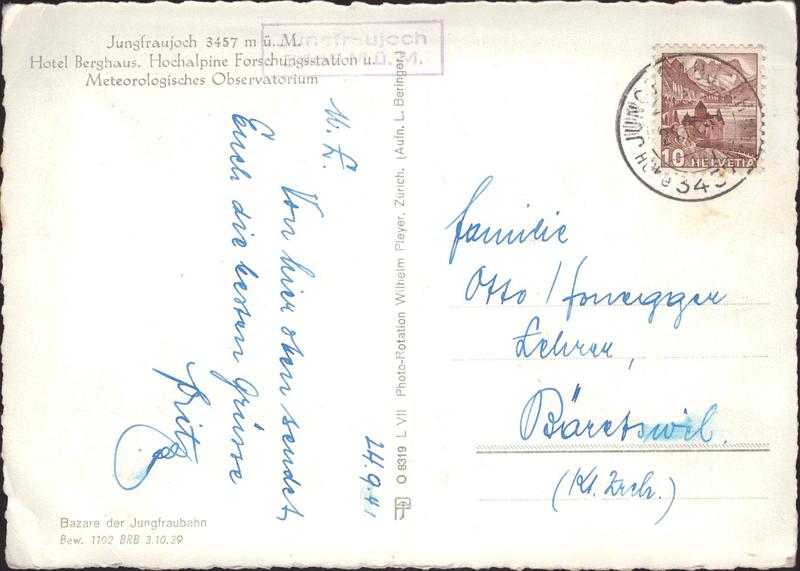 Jungfraujoch 3457 m ü. M.
Hotel Berghaus. Hochalpine Forschungsstation u.
Meteorologisches Observatorium
Jungfraujoch
M. ü. M.
M. L.
Von hier oben sendet
Euch die besten Grüsse
Fritz
24.9.41
Bazare der Jungfraubahn
Bew. 1102 BRB 3.10.39
O 8319 L VII Photo-Rotation Wilhelm Pleyer, Zürich. (Aufn. L. Beringer)
10 HELVETIA
Familie
Otto
Lehrer,
Bäretswil.
(Kt. Zrch.)